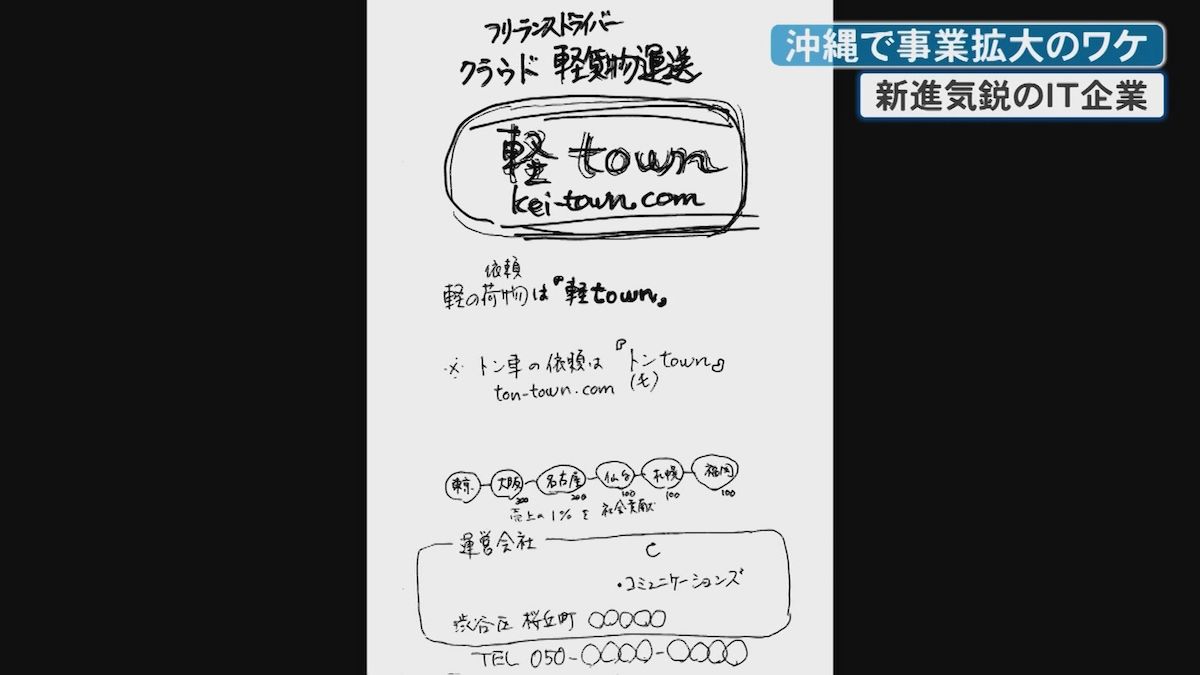 沖縄で事業拡大のワケ
新進気鋭のIT企業
フリーランスドライバー
クラウド 軽貨物運送
軽town
kei-town.com
依頼
軽の荷物は『軽town』
※ トン車の依頼は『トンtown』
ton-town.com (モ)
東京 大阪 名古屋 仙台 札幌 福岡
200 200 100 100 100
売上の1%を社会貢献
運営会社
C
・コミュニケーションズ
渋谷区桜丘町 〇〇〇〇〇
TEL 050-〇〇〇〇-〇〇〇〇